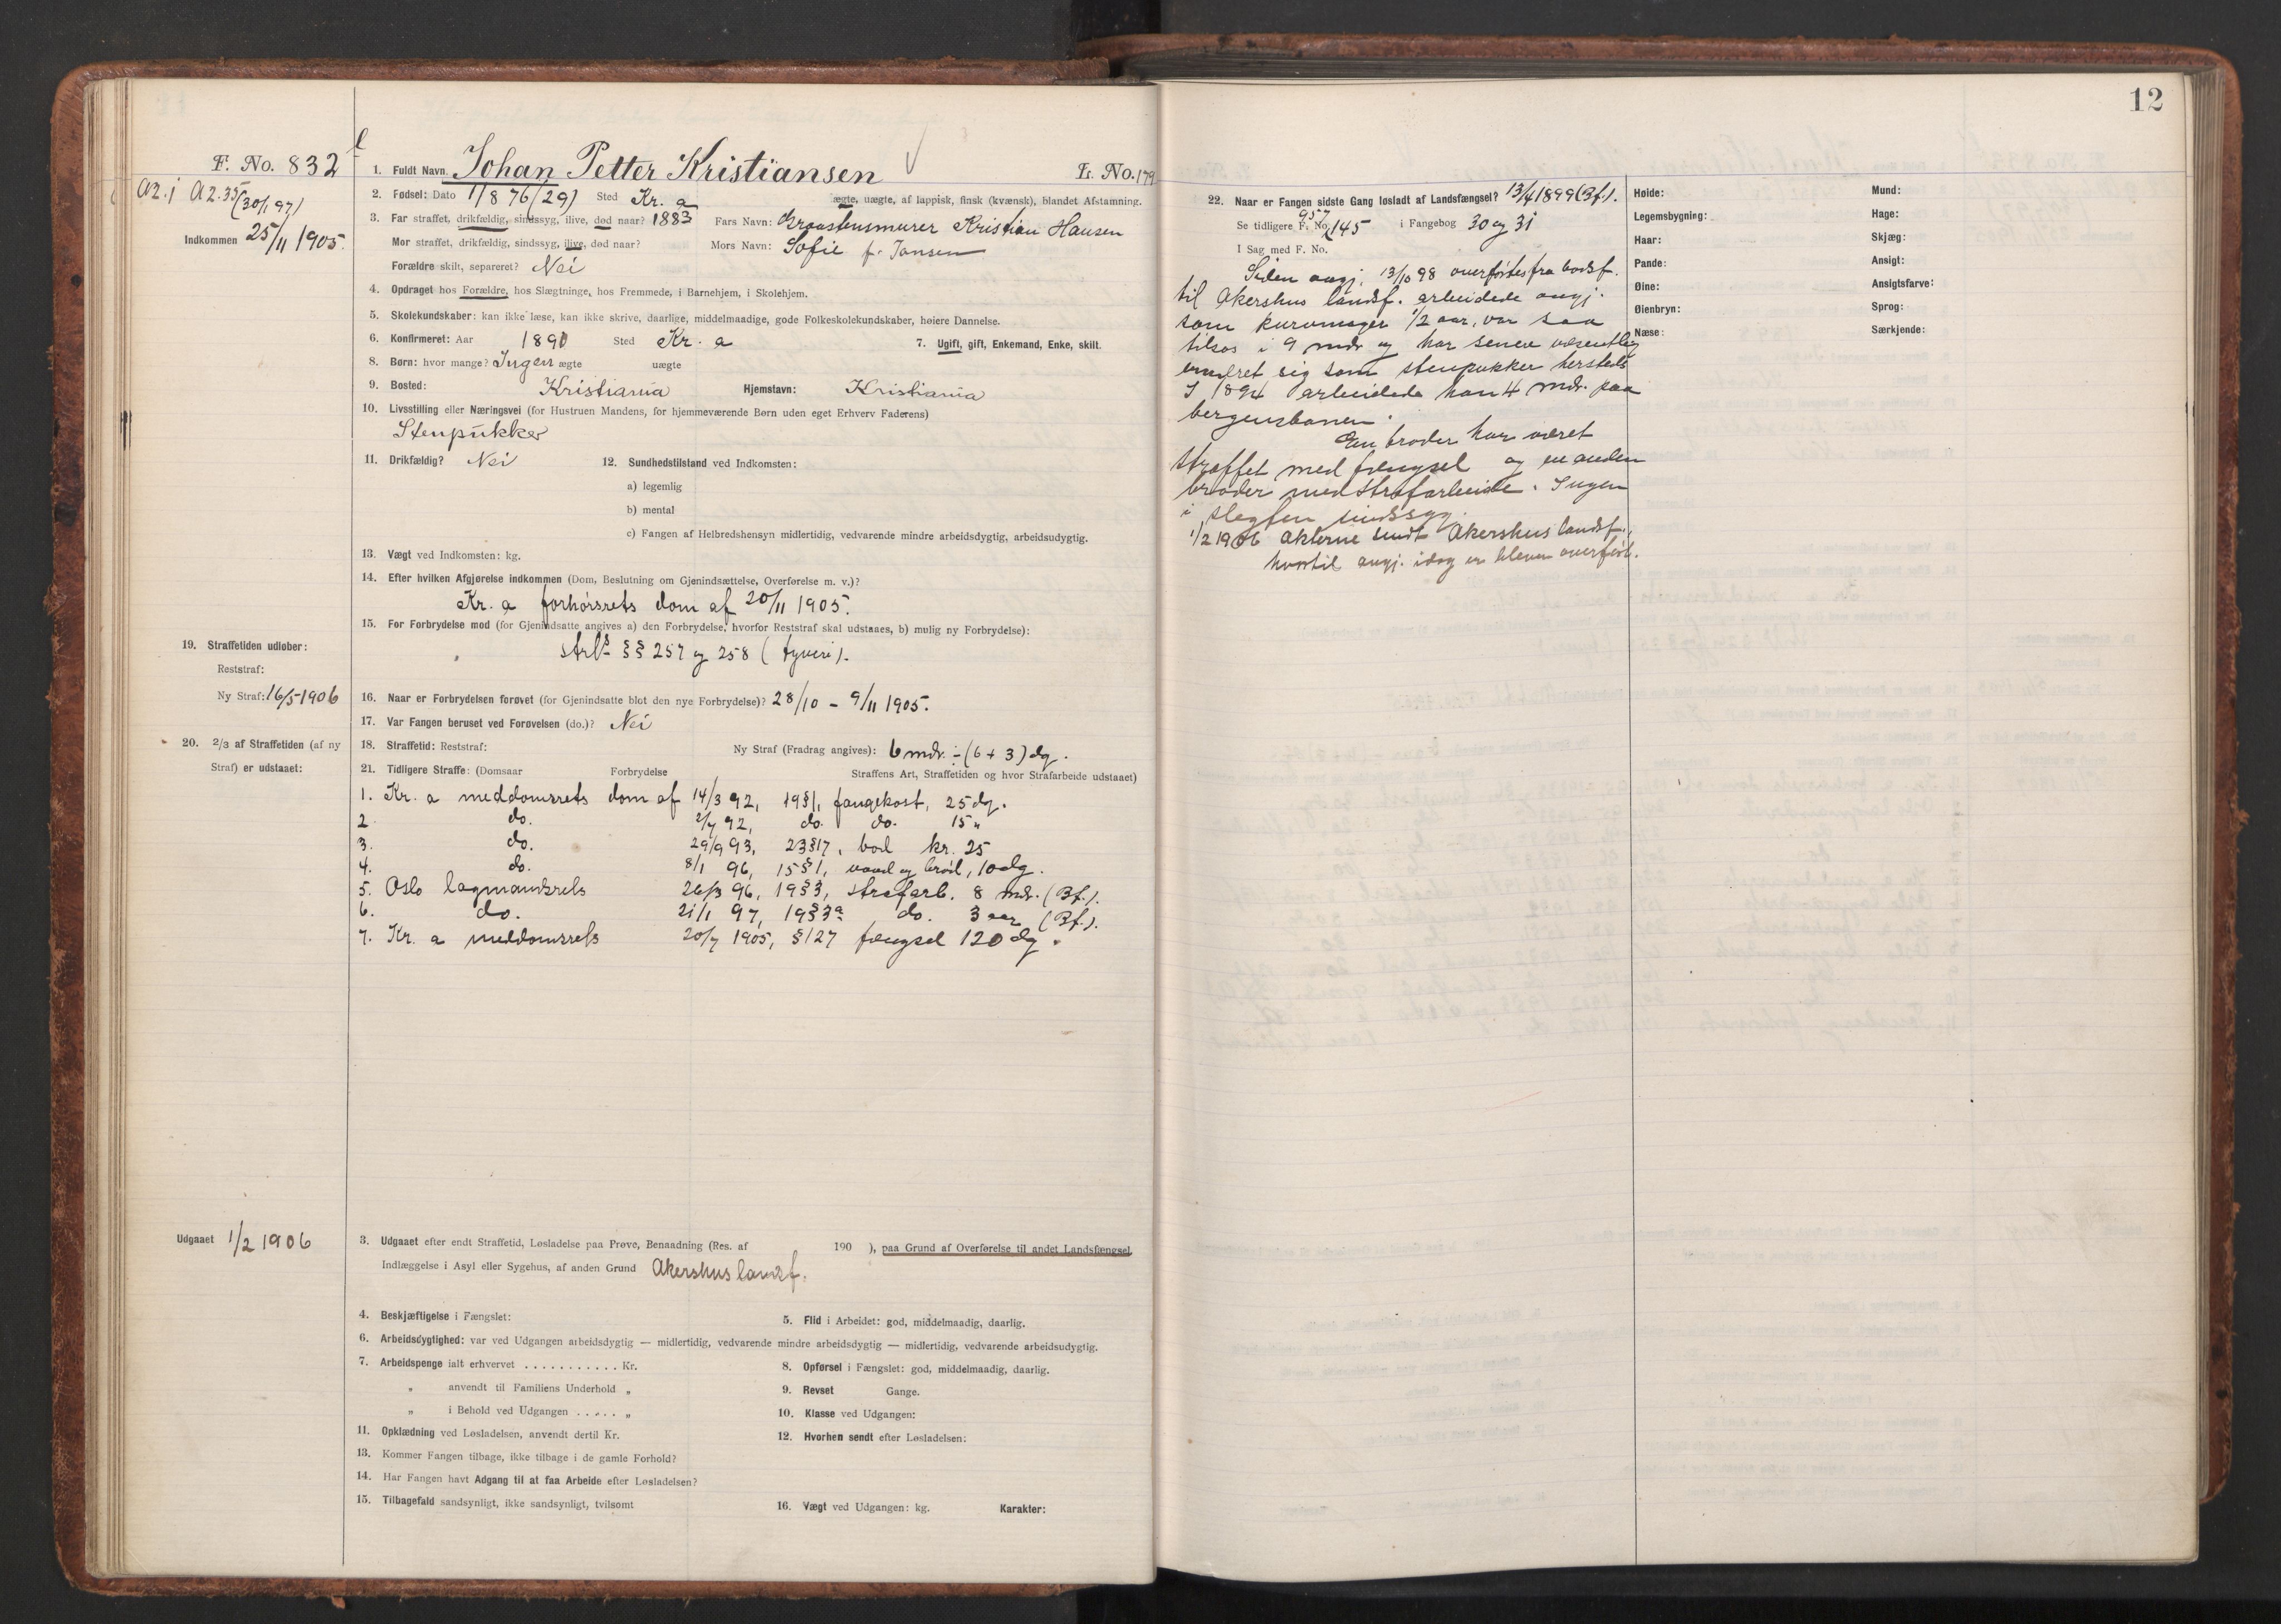 12
F. No. 832
Az. j Az. 35 (30/1 97)
Indkommen 25/11 1905.
1. Fuldt Navn. Johan Petter Kristiansen L. No. 179
2. Fødsel: Dato 1/8 76 (29) Sted Kr. a ægte, uægte, af lappisk, finsk (kvænsk), blandet Afstamning.
3. Far straffet, drikfældig, sindssyg, ilive, død naar? 1883 Fars Navn: Kristian Hansen
Mor straffet, drikfældig, sindssyg, ilive, død naar? Mors Navn: Sofie f. Jansen
Forældre skilt, separeret? Nei
4. Opdraget hos Forældre, hos Slægtninge, hos Fremmede, i Barnehjem, i Skolehjem.
5. Skolekundskaber: kan ikke læse, kan ikke skrive, daarlige, middelmaadige, gode Folkeskolekundskaber, høiere Dannelse.
6. Konfirmeret: Aar 1891 Sted Kr. a 7. Ugift, gift, Enkemand, Enke, skilt.
8. Børn: hvor mange? Ingen ægte uægte
9. Bosted: Kristiania Hjemstavn: Kristiania
10. Livsstilling eller Næringsvei (for Hustruen Mandens, for hjemmeværende Børn uden eget Erhverv Faderens)
Stenpukker
11. Drikfældig? Nei 12. Sundhedstilstand ved Indkomsten:
a) legemlig
b) mental
c) Fangen af Helbredshensyn midlertidig, vedvarende mindre arbeidsdygtig, arbeidsudygtig.
13. Vægt ved Indkomsten: kg.
14. Efter hvilken Afgjørelse indkommen (Dom, Beslutning om Gjenindsættelse, Overførelse m. v.)?
Kr. a forhørsrets dom af 20/11 1905.
15. For Forbrydelse mod (for Gjenindsatte angives a) den Forbrydelse, hvorfor Reststraf skal udstaaes, b) mulig ny Forbrydelse):
strl. §§ 257 og 258 (tyveri).
19. Straffetiden udløber:
Reststraf:
Ny Straf: 16/5 1906
16. Naar er Forbrydelsen forøvet (for Gjenindsatte blot den nye Forbrydelse)? 28/10 - 9/11 1905.
17. Var Fangen beruset ved Forøvelsen (do.)? Nei
20. 2/3 af Straffetiden (af ny
Straf) er udstaaet:
18. Straffetid: Reststraf: Ny Straf (Fradrag angives): 6 mdr. ÷ (6 + 3) dg.
21. Tidligere Straffe: (Domsaar Forbrydelse Straffens Art, Straffetiden og hvor Strafarbeide udstaaet)
1. Kr. a meddomsrets dom af 14/3 92, 19§1, fangekost, 25 dg.
2 do. 2/7 92, do. do. 15 "
3. do. 29/9 93, 23§17, bod kr. 25
4. do. 8/1 96, 15§1, vand og brød, 10 dg.
5. Oslo lagmandsrets 26/3 96, 19§3, strafarb. 8 mdr. (Bf.).
6. do. 21/1 97, 19§3a do. 3 aar (Bf.).
7. Kr. a meddomsrets 20/7 1905, §127 fængsel 120 dg.
Udgaaet 1/2 1906
3. Udgaaet efter endt Straffetid, Løsladelse paa Prøve, Benaadning (Res. af 190 ), paa Grund af Overførelse til andet Landsfængsel,
Indlæggelse i Asyl eller Sygehus, af anden Grund Akershus landsf.
4. Beskjæftigelse i Fængslet: 5. Flid i Arbeidet: god, middelmaadig, daarlig.
6. Arbeidsdygtighed: var ved Udgangen arbeidsdygtig — midlertidig, vedvarende mindre arbeidsdygtig — midlertidig, vedvarende arbeidsudygtig.
7. Arbeidspenge ialt erhvervet . . . . . . . . . . . Kr. 8. Opførsel i Fængslet: god, middelmaadig, daarlig.
„ anvendt til Familiens Underhold „ 9. Revset Gange.
„ i Behold ved Udgangen . . . . . „ 10. Klasse ved Udgangen:
11. Opklædning ved Løsladelsen, anvendt dertil Kr. 12. Hvorhen sendt efter Løsladelsen:
13. Kommer Fangen tilbage, ikke tilbage i de gamle Forhold?
14. Har Fangen havt Adgang til at faa Arbeide efter Løsladelsen?
15. Tilbagefald sandsynligt, ikke sandsynligt, tvilsomt 16. Vægt ved Udgangen: kg. Karakter:
22. Naar er Fangen sidste Gang løsladt af Landsfængsel? 13/4 1899 (Bf.).
957
Se tidligere F. No. 145 i Fangebog 30 og 31
I Sag med F. No.
Siden angj. 13/10 98 overførtes fra bodsf.
til Akershus landsf. arbeidede angj.
som kurvmager 1/2 aar, var saa
tilsøs i 9 mdr og har senere væsentlig
ernæret sig som stenpukker hersteds
I 1894 arbeidede han 4 mdr. paa
bergensbanen.
En broder har været
straffet med fængsel og en anden
broder med strafarbeide. Ingen
i slegten sindssyg.
1/2 1906 Akterne sendt Akershus landsf.,
hvortil angj. idag er bleven overført.
Høide: Mund:
Legemsbygning: Hage:
Haar: Skjæg:
Pande: Ansigt:
Øine: Ansigtsfarve:
Øienbryn: Sprog:
Næse: Særkjende: